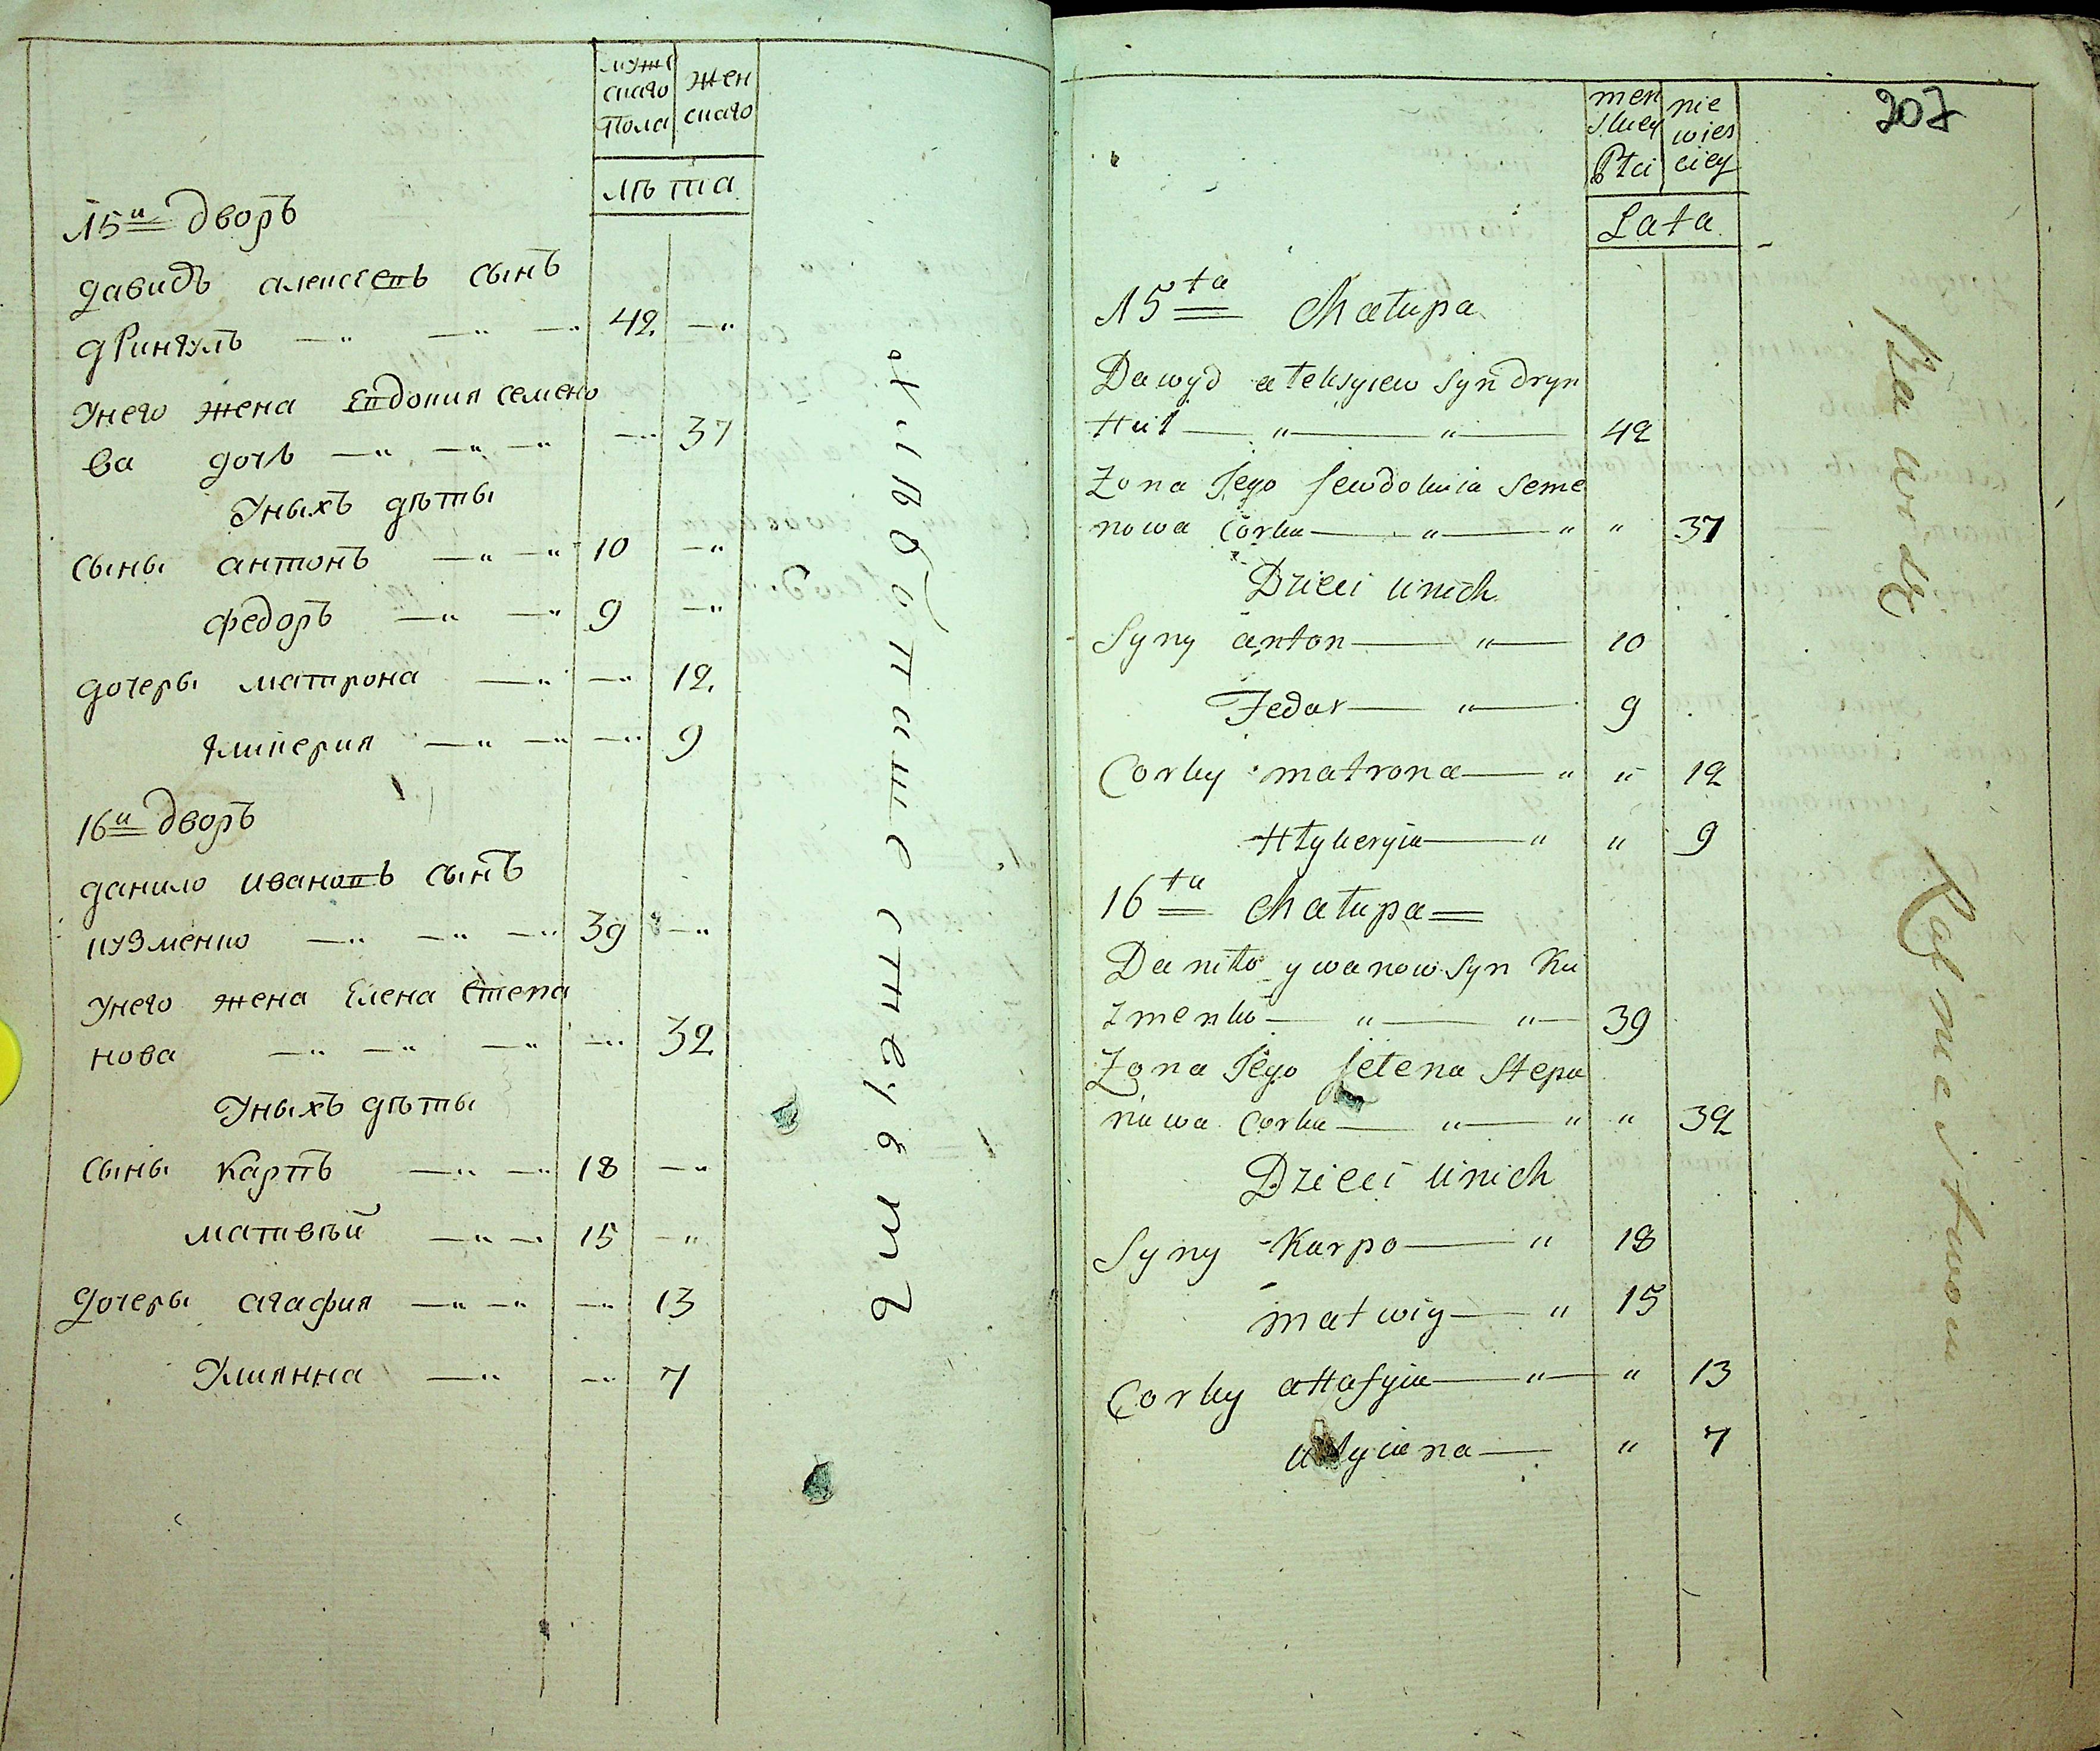 муже
скаго
Пола
жен
скаго
лѣта
15й дворъ
давидъ алексеевъ сынъ
дрингулъ — „ — „ — „ 42 — „
Унего жена Евдокия семено
ва дочь — „ — „ — „ — „ 37
Уныхъ дѣты
сыны антонъ — „ — „ 10 — „
федоръ — „ — „ 9 — „
дочеры матрона — „ — „ 12
Гликерия — „ — „ — „ 9
16й дворъ
данило ивановъ сынъ
кузменко — „ — „ — „ 39 — „
Унего жена Елена Степа
нова — „ — „ — „ — „ 32
Уныхъ дѣты
сыны Карпъ — „ — „ 18 — „
матвѣй — „ — „ 15 — „
дочеры агафия — „ — „ — „ 13
Улиянна — „ — „ 7
207
men
skiey
Płci
nie
wies
ciey
Lata
15ta Chałupa
Dawyd ałeksyiew syn dryn
Huł — „ — „ — 42
Zona Jego Jewdokiia Seme
nowa Corka — „ — „ „ 37
Dzieci unich
Syny anton — „ — 10
Fedor — „ — 9
Corky matrona — „ „ 12
Hłykeryia — „ „ 9
16ta Chałupa
Daniło ywanow syn Ku
zmenko — „ — „ — 39
Zona Jego Jełena Stepa
nowa Corka — „ — „ „ 32
Dzieci unich
Syny Karpo — „ 18
matwiy — „ 15
Corky aHafyia — „ — „ 13
ułyiana — „ 7